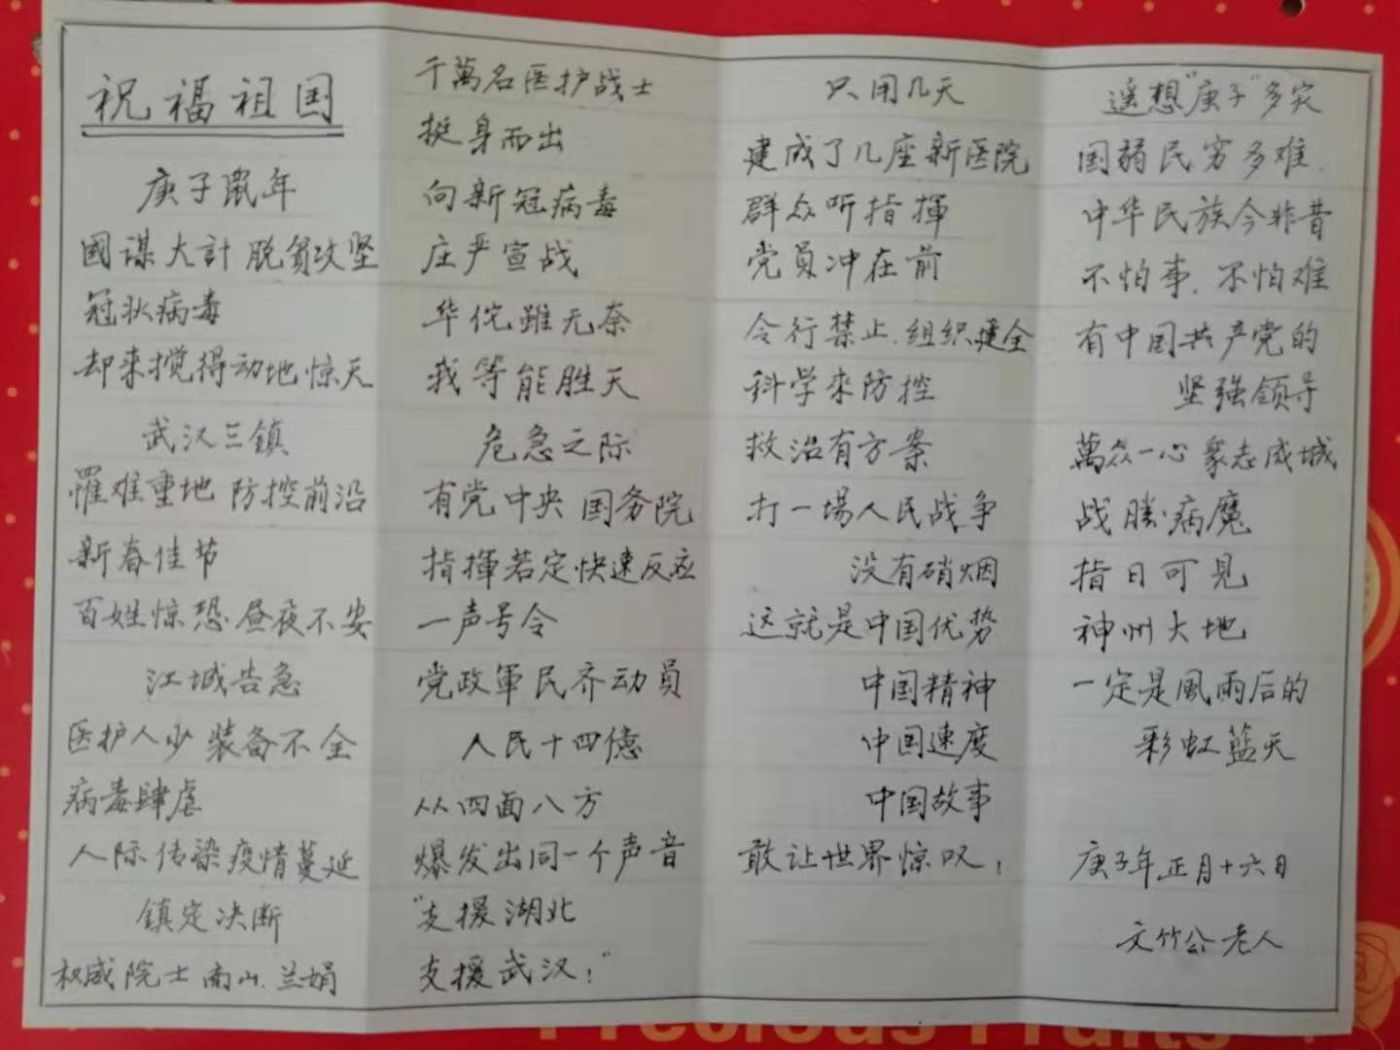 祝福祖国
庚子鼠年
國谋大計 脱貧攻坚
冠状病毒
却来搅得动地惊天
武汉三鎮
罹难重地 防控前沿
新春佳节
百姓惊恐 昼夜不安
江城告急
医护人少 装备不全
病毒肆虐
人际传染疫情蔓延
鎮定决断
权威院士南山.兰娟
千萬名医护战士
挺身而出
向新冠病毒
庄严宣战
华佗雖无奈
我等能胜天
危急之际
有党中央 国务院
指揮若定快速反应
一声号令
党政軍民齐动員
人民十四億
从四面八方
爆发出同一个声音
"支援湖北
支援武汉!"
只用几天
建成了几座新医院
群众听指揮
党員冲在前
令行禁止.组织健全
科学来防控
救治有方案
打一場人民战争
没有硝烟
这就是中国优势
中国精神
中国速度
中国故事
敢让世界惊叹!
遥想"庚子"多灾
国弱民穷多难.
中华民族今非昔
不怕事.不怕难
有中国共产党的
坚强领导
萬众一心 衆志成城
战勝病魔
指日可見
神州大地
一定是風雨后的
彩虹蓝天
庚子年正月十六日
文竹公老人
Precious Fruits